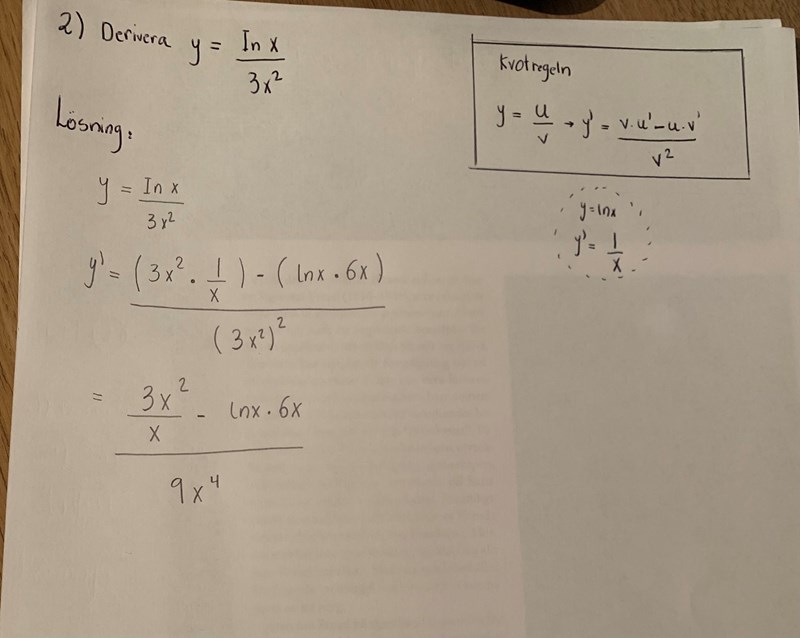 2) Derivera y = ln x / 3x²
Kvotregeln
y = u/v → y' = (v·u' - u·v') / v²
y = lnx
y' = 1/x
Lösning:
y = ln x / 3x²
y' = ((3x² · 1/x) - (lnx · 6x)) / (3x²)²
= (3x²/x - lnx · 6x) / 9x⁴